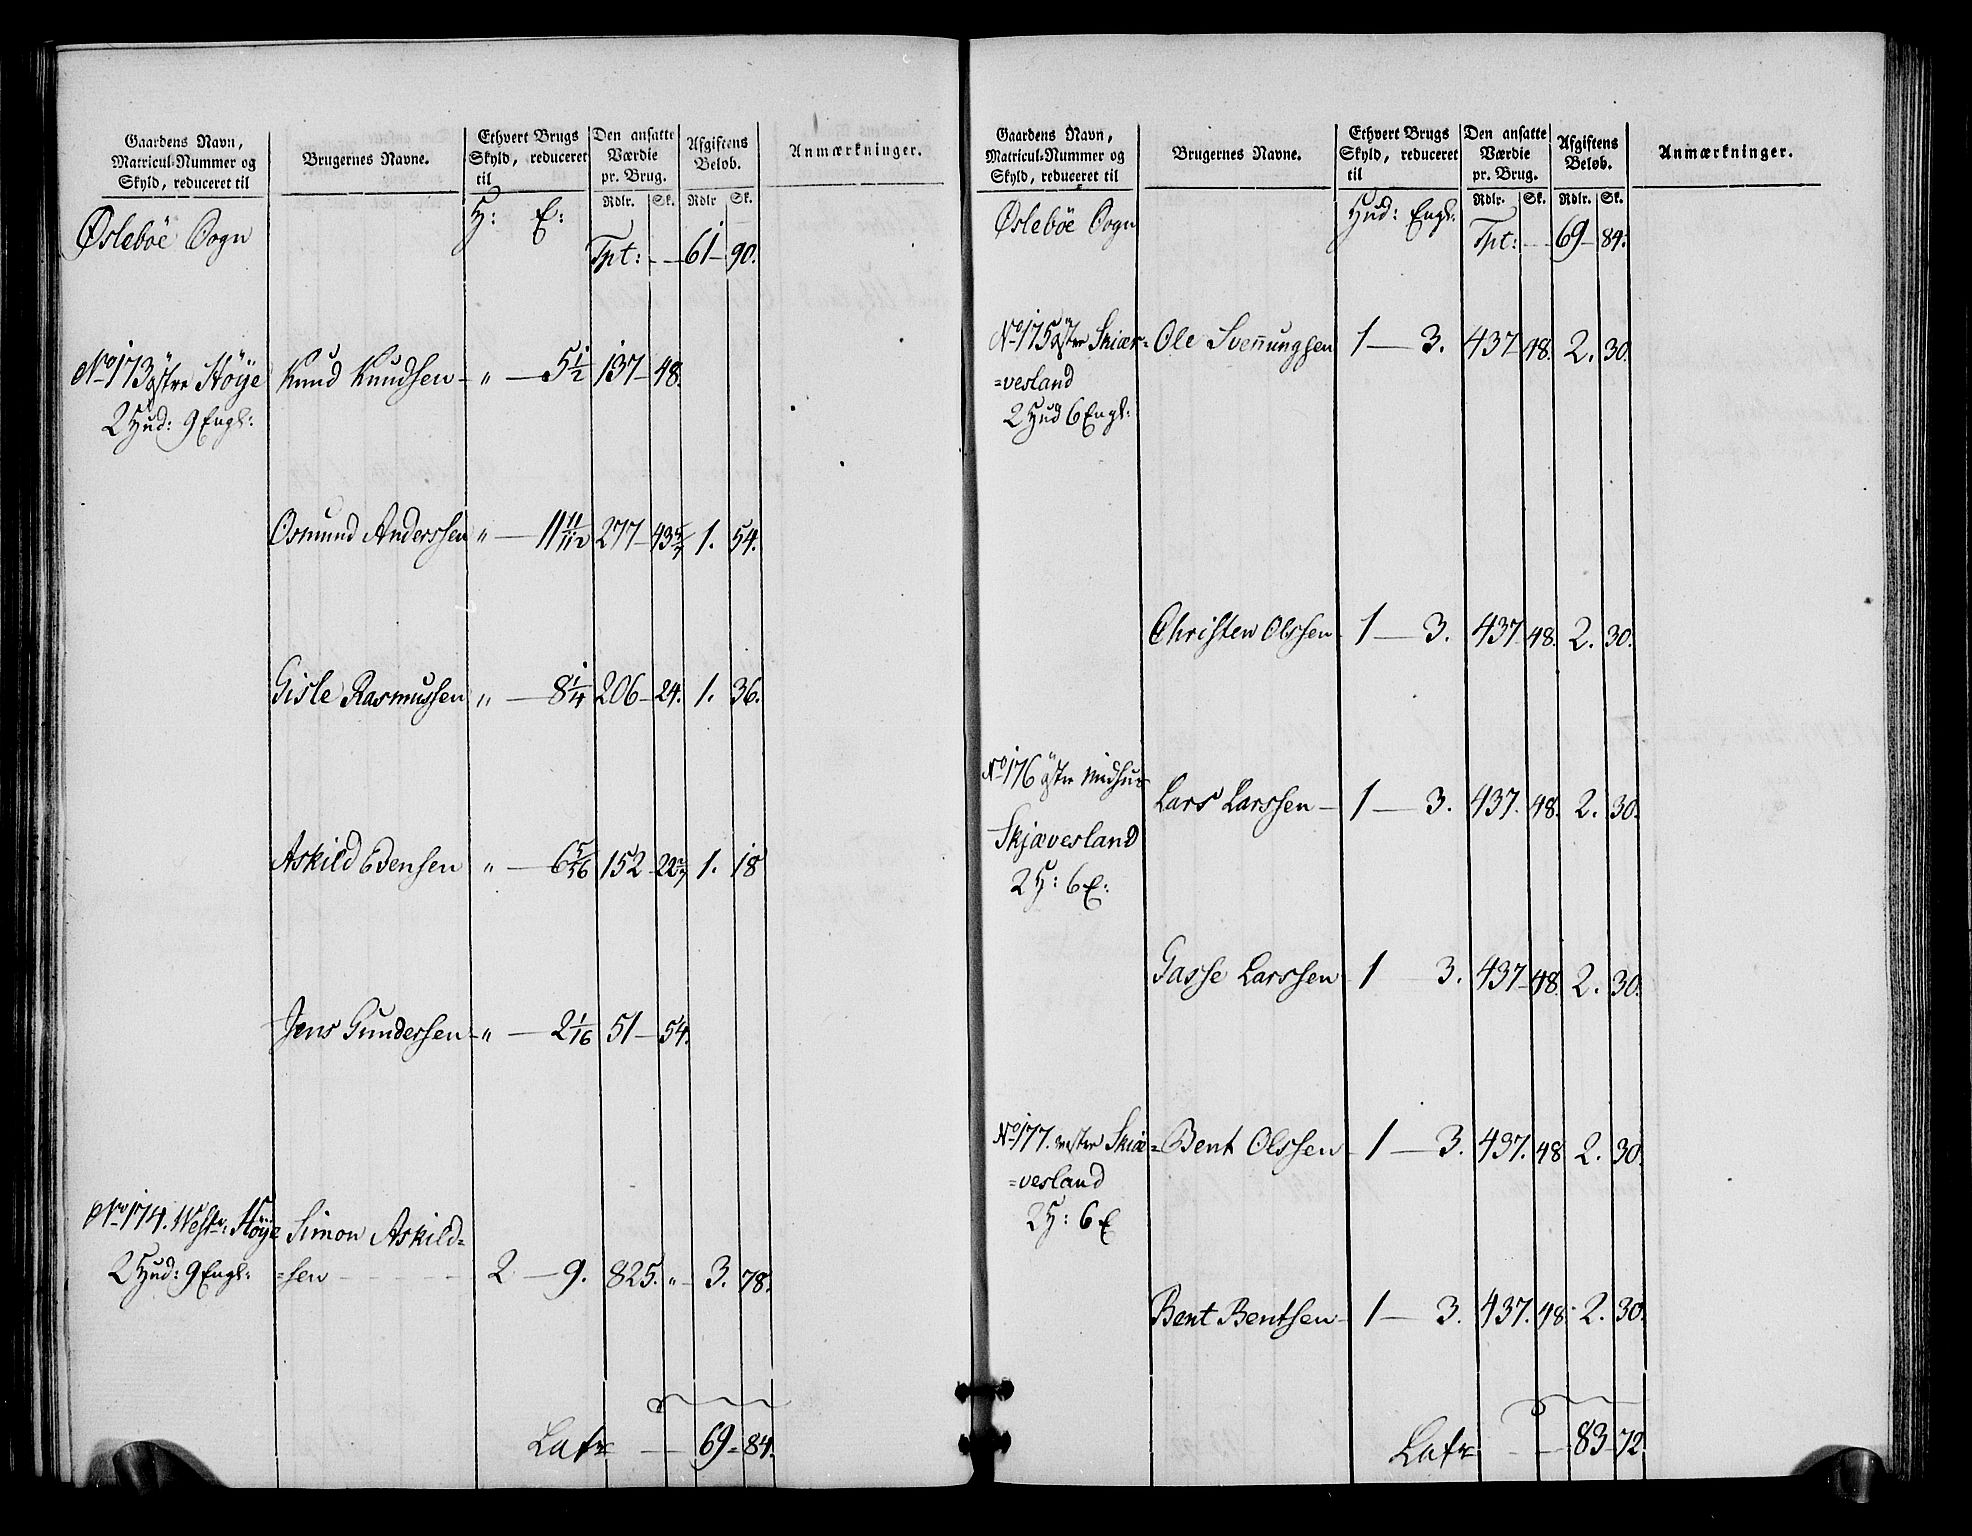 Gaardens Navn, Matricul-Nummer og Skyld, reduceret til | Brugernes Navne. | Ethvert Brugs Skyld, reduceret til | Den ansatte Værdie pr. Brug. | Afgiftens Beløb. | Anmærkninger.
Rdlr. | Sk. | Rdlr | Sk.
Øslebøe Sogn | H: E: | Tpt: - - 61 - 90.
No 173 östre Höÿe | Knud Knudsen - " - 5 1/2 | 137 - 48.
2 Hud: 9 Engl:
Osmund Anderssen " - 11 11/112 | 277 - 43 5/7 | 1. 54.
Gisle Rasmussen " - 8 1/4 | 206 - 24. | 1. 36.
Askild Edensen " - 6 5/56 | 152 - 22 2/7 | 1. 18
Jens Gunderssen - " - 2 1/16 | 51 - 54.
No 174. Westr: Höÿe | Simon Askild=
2 Hud: 9 Engl: | =sen - - - 2 - 9. | 825. " - 3. 78.
Latr - 69 - 84.
Gaardens Navn, Matricul-Nummer og Skyld, reduceret til | Brugernes Navne. | Ethvert Brugs Skyld, reduceret til | Den ansatte Værdie pr. Brug. | Afgiftens Beløb. | Anmærkninger.
Rdlr. | Sk. | Rdlr. | Sk.
Øslebøe Sogn | Hud: Engl: | Tpt: - - 69 - 84.
No 175 östre Skiær= | Ole Svennungsen 1 - 3. | 437 - 48. | 2. 30.
=vesland
2 Hud 6 Engl:
Christen Olssen - 1 - 3. | 437. 48. | 2. 30.
No 176 östre midhus | Lars Larssen - 1 - 3. | 437. 48. | 2. 30.
Skjævesland
2 H: 6 E:
Gasse Larssen - 1 - 3. | 437 - 48. | 2. 30.
No 177. vestre Skiæ= | Bent Olssen - 1 - 3. | 437. 48 | 2. 30.
=vesland
2 H: 6 E
Bent Bentsen - 1 - 3. | 437. 48. - 2. 30.
Latr - - 83 - 72.